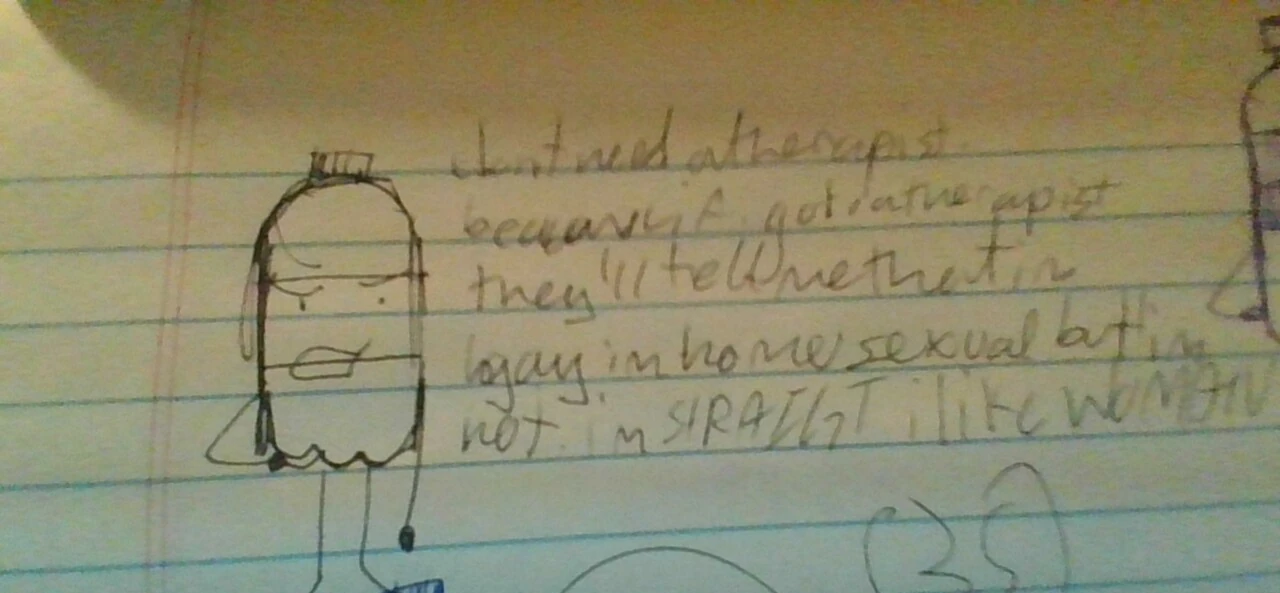 i dont need a therapist
because if i got a therapist
they'll tell me that im
gay, im homesexual but im
not. im STRAIGHT i like WOMAN